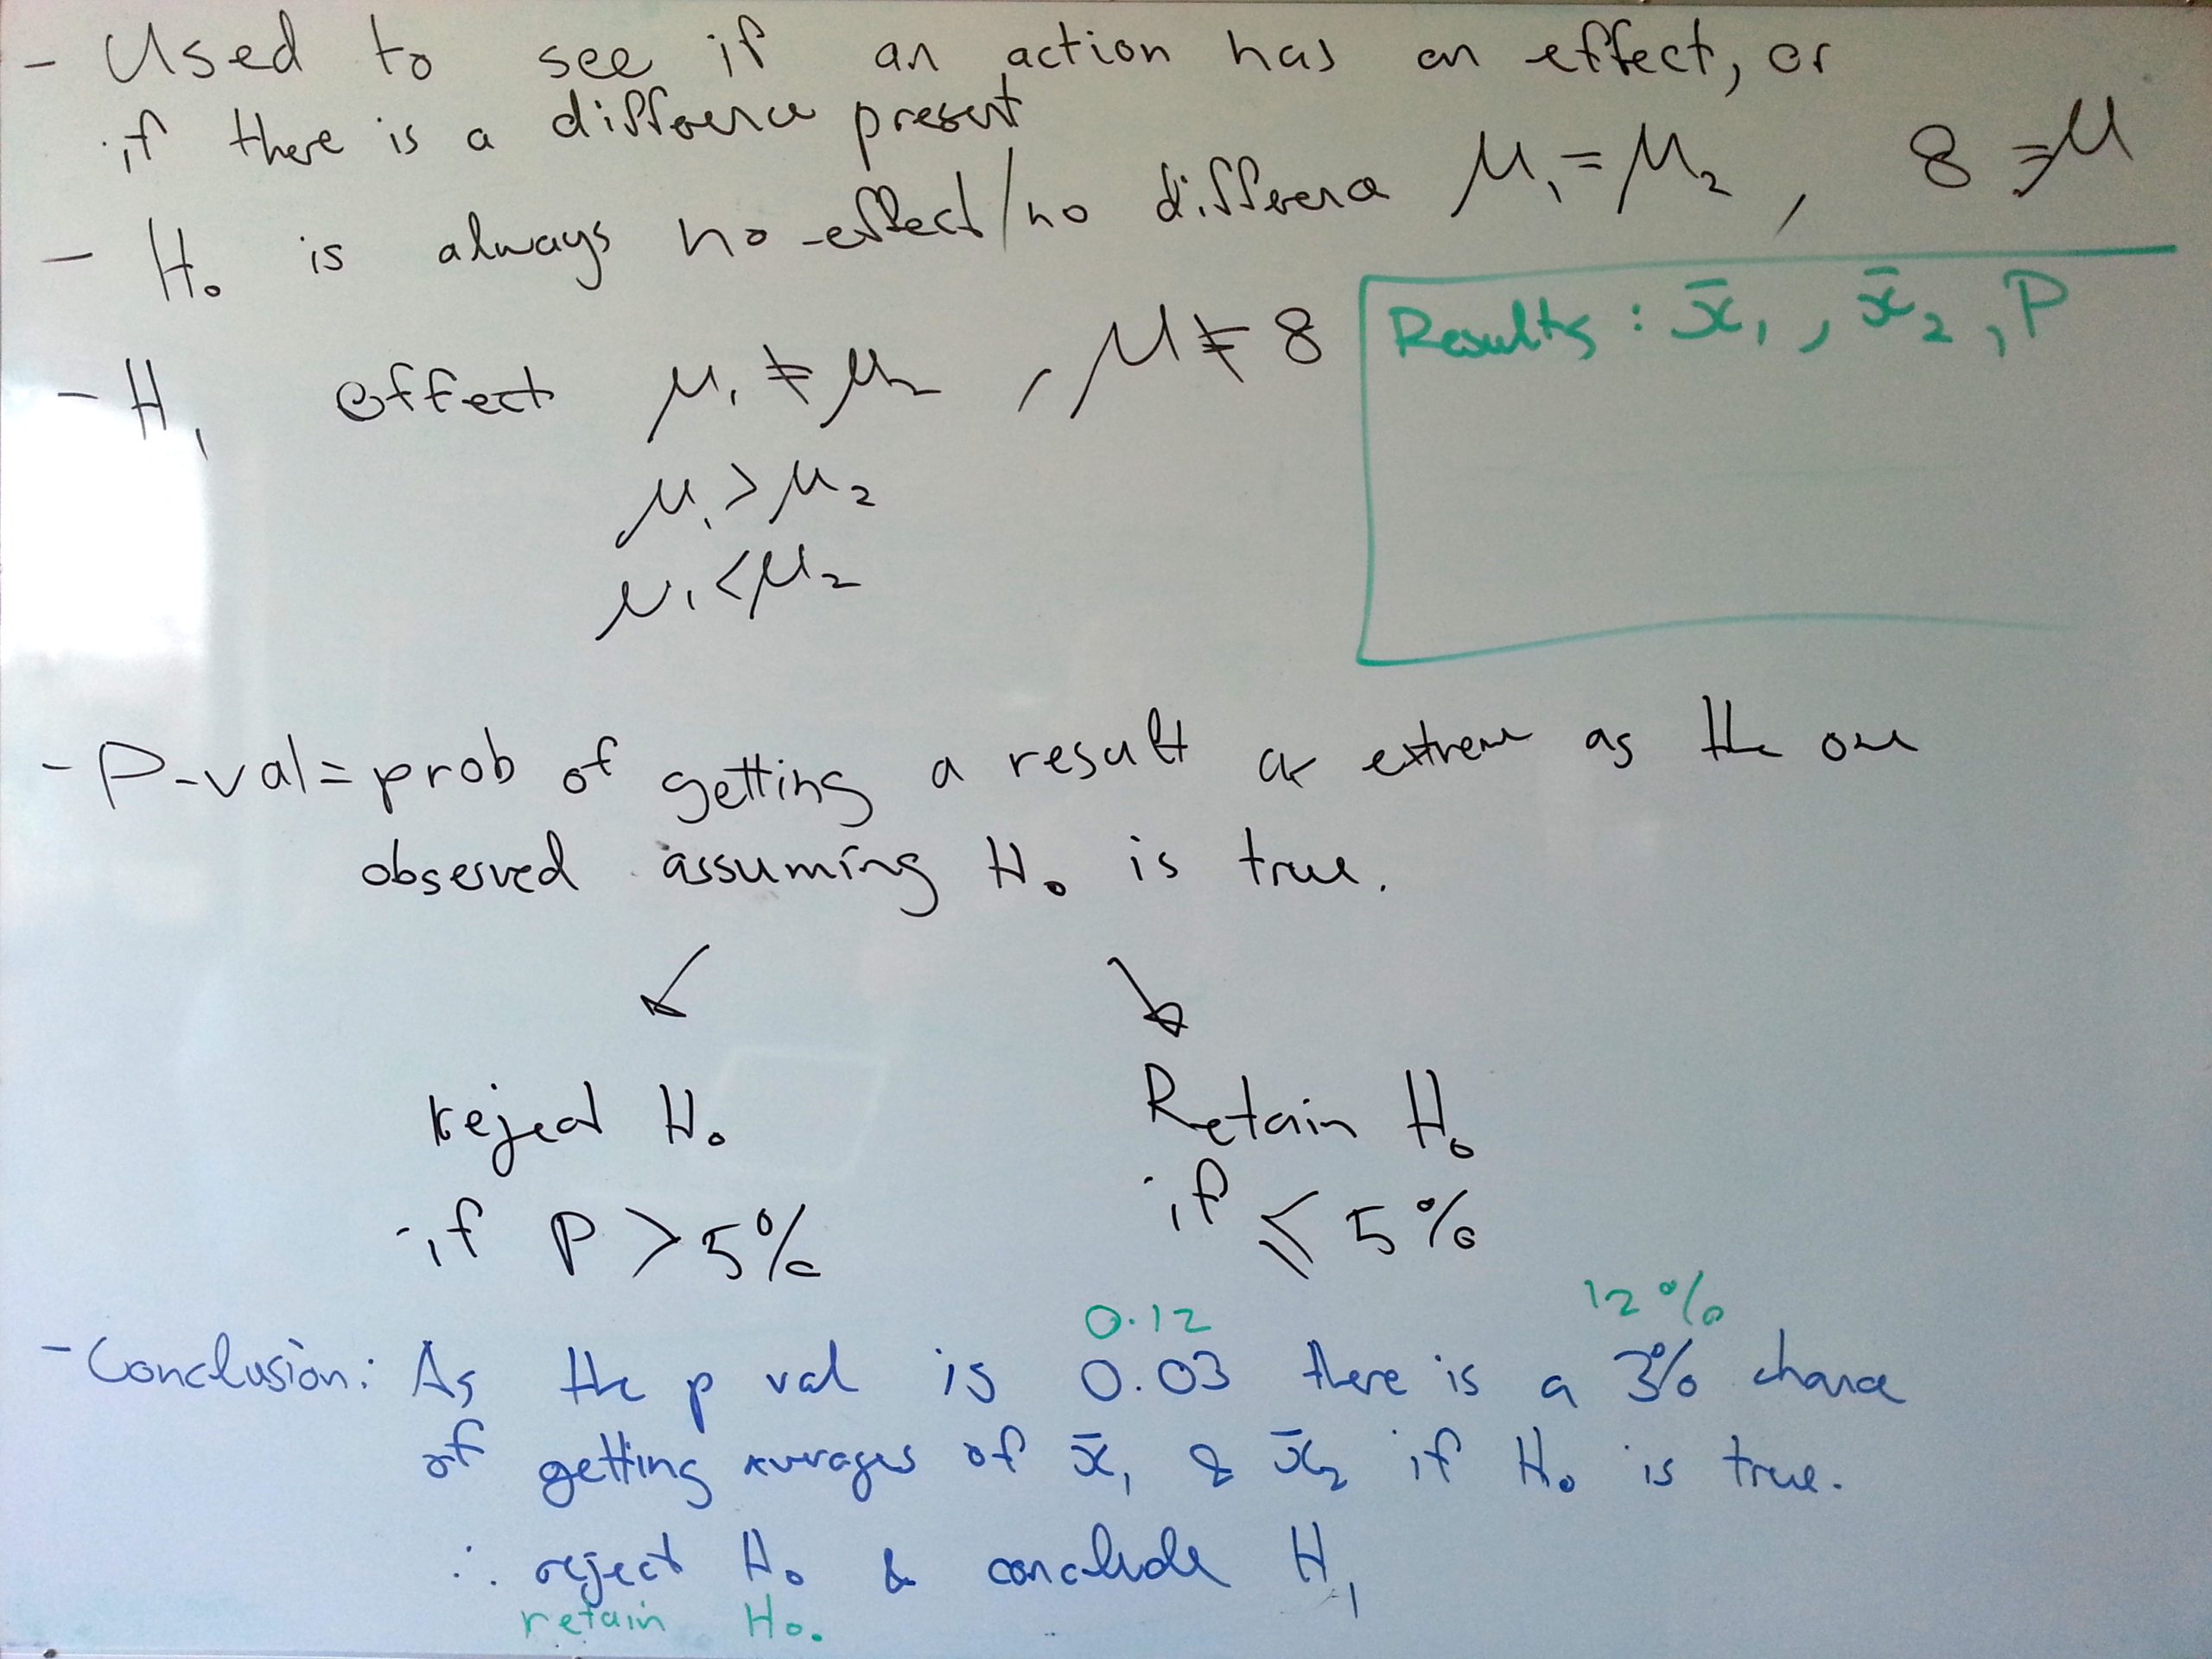 - Used to see if an action has an effect, or
if there is a difference present
- H₀ is always no-effect/no difference μ₁ = μ₂ , 8 = μ
Results: x̄₁ , x̄₂ , P
- H₁ effect μ₁ ≠ μ₂ , μ ≠ 8
μ₁ > μ₂
μ₁ < μ₂
- P-val = prob of getting a result as extreme as the one
observed assuming H₀ is true.
reject H₀ Retain H₀
if P > 5% if ≤ 5%
0.12 12%
- Conclusion: As the p val is 0.03 there is a 3% chance
of getting averages of x̄₁ & x̄₂ if H₀ is true.
∴ reject H₀ & conclude H₁
retain H₀.